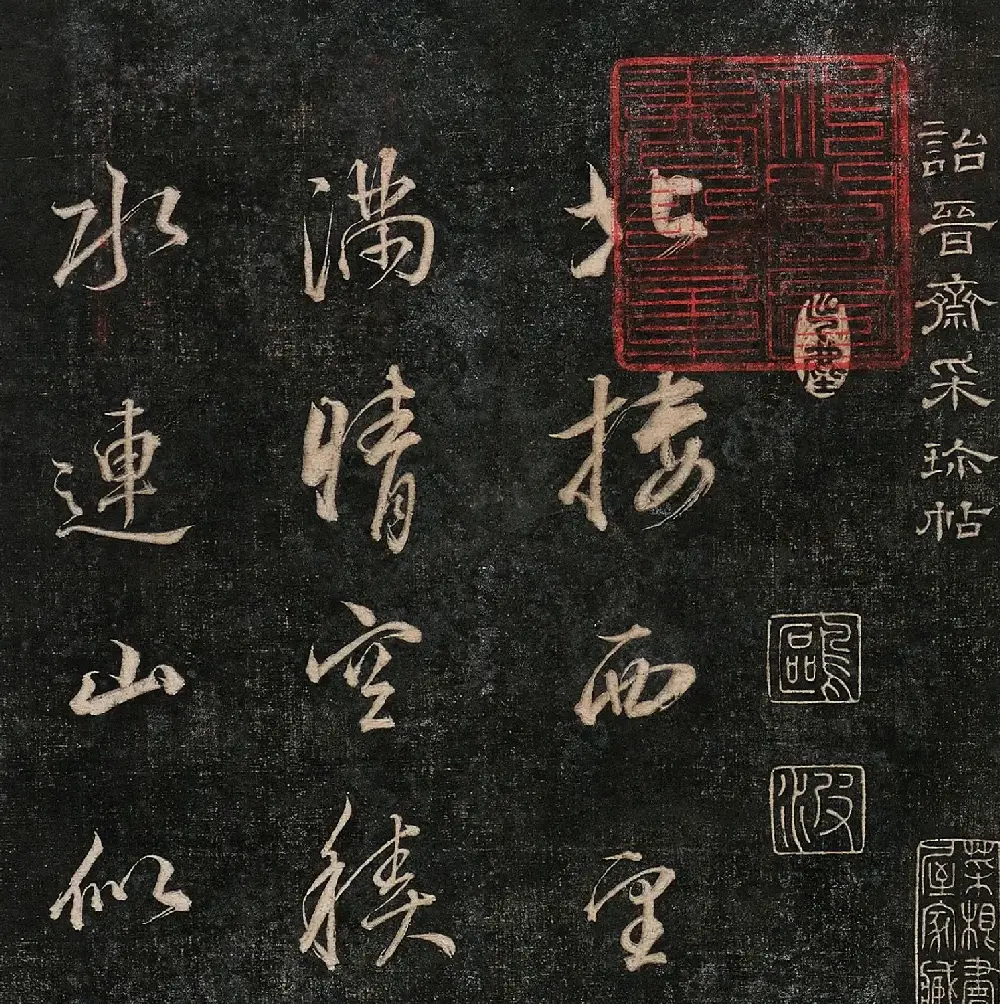 詒晉齋采珍帖
鷗
波
北樓西望
滿晴空積
水連山似